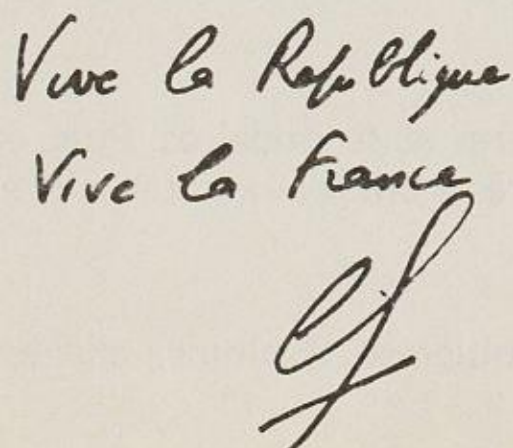 Vive la République
Vive la France